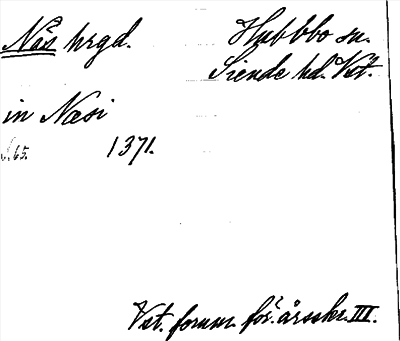 Näs hrgd.
Hubbbo sn.
Siende hd. Vst.
in Næsi
s. 65.
1371.
Vst. fornm. för. årsskr. III.